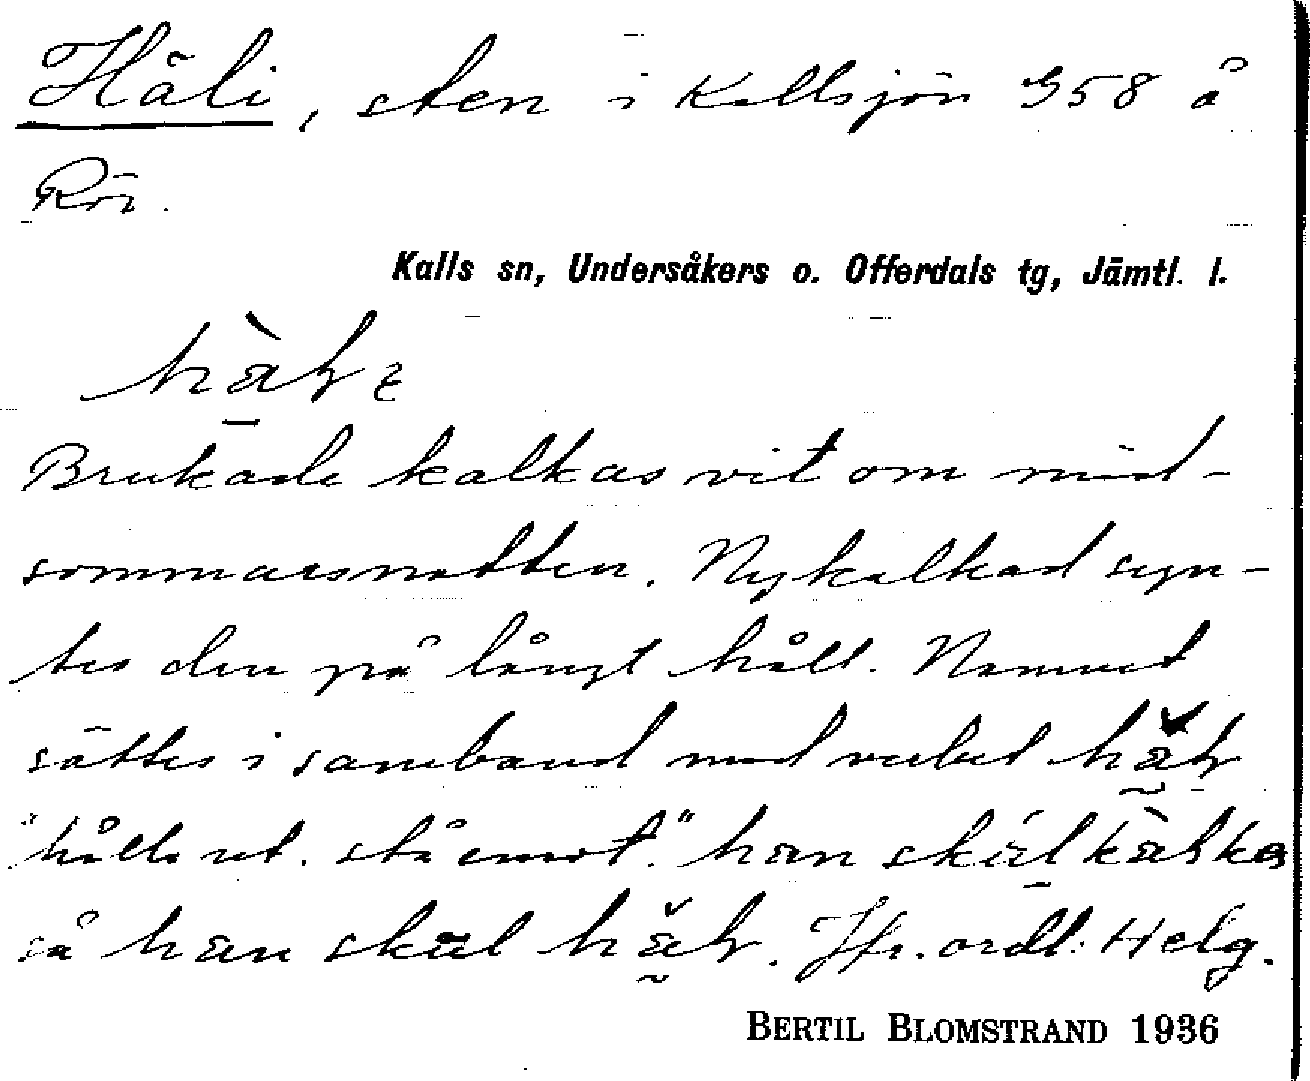 Häli, sten i Kallsjön 958 å
Röi.
Kalls sn, Undersåkers o. Offerdals tg, Jämtl. l.
Brukade kalkas vit om mid-
sommarsnatten. Nykalkad syn-
tes den på långt håll. Namnet
sättes i samband med verbet
"hålla ut. stå emot." han skäl
så han skäl. Jfr. ordl: Helg.
BERTIL BLOMSTRAND 1936